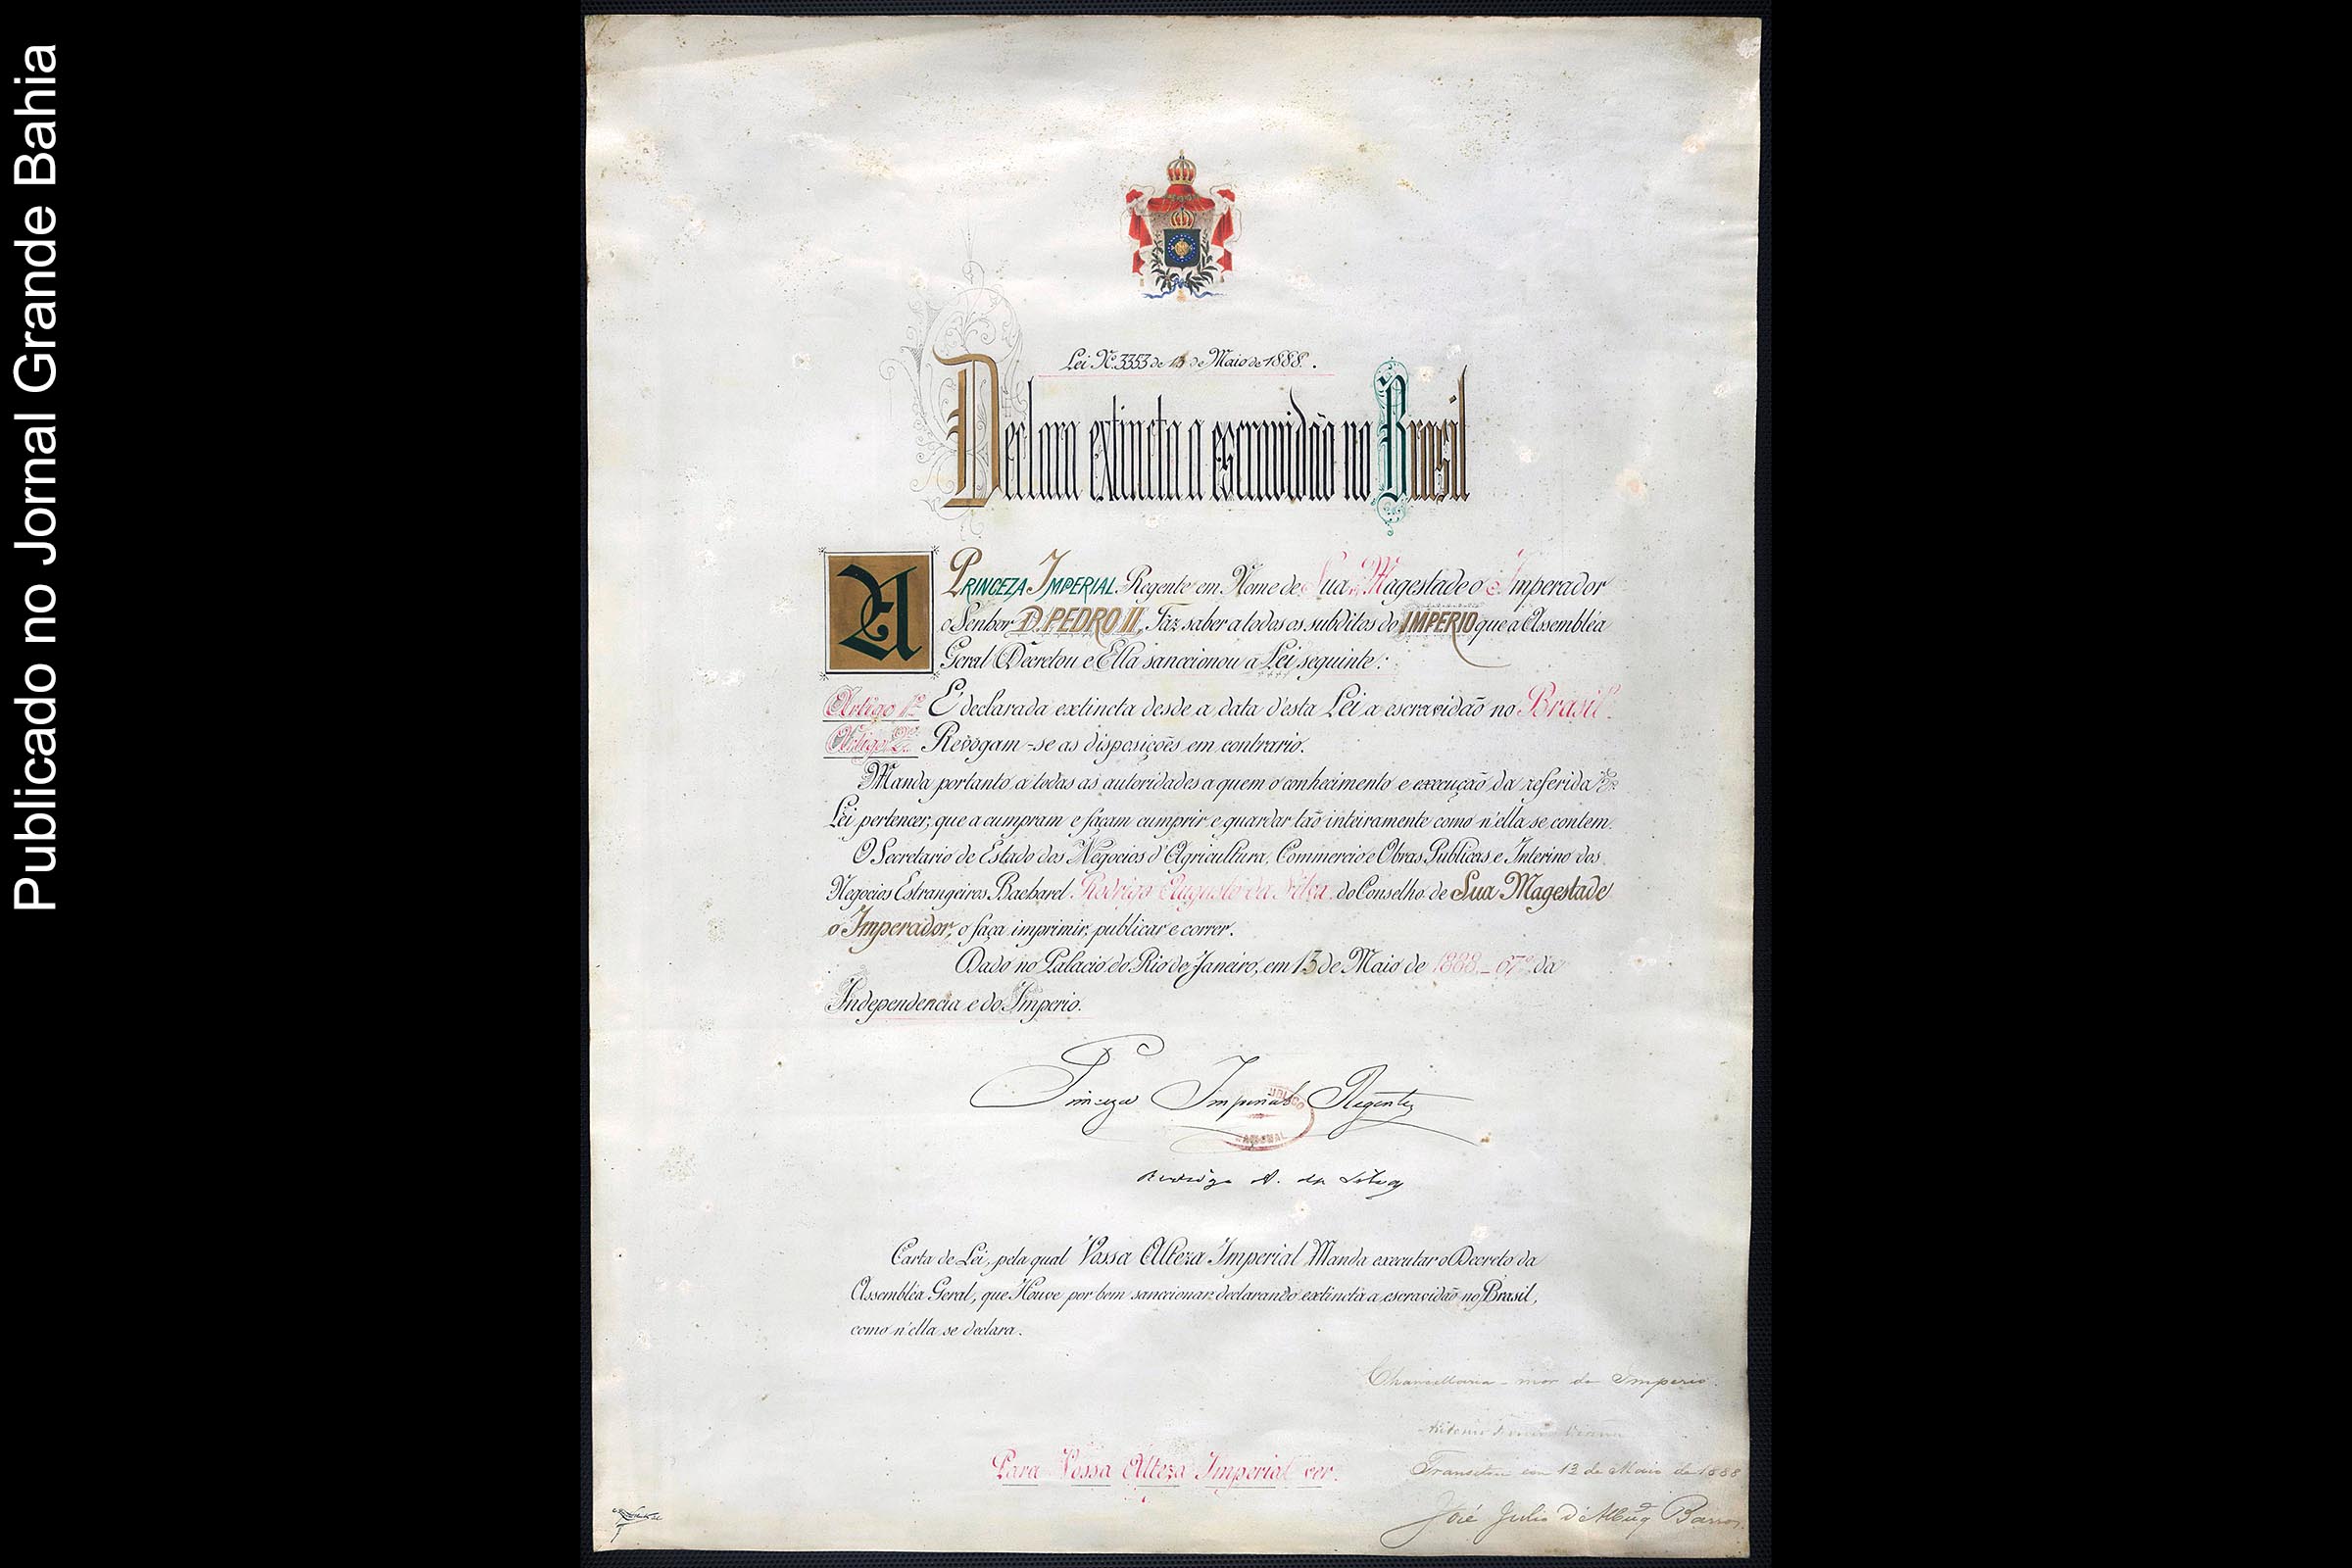 Publicado no Jornal Grande Bahia
Lei Nº 3353 de 13 de Maio de 1888.
Declara extincta a escravidão no Brasil
A PRINCEZA IMPERIAL Regente em Nome de Sua Magestade o Imperador
o Senhor D. PEDRO II, Faz saber a todos os subditos do IMPERIO que a Assembléa
Geral Decretou e Ella sanccionou a Lei seguinte:
Artigo 1º É declarada extincta desde a data d'esta Lei a escravidão no Brasil.
Artigo 2º Revogam-se as disposições em contrario.
Manda portanto a todas as autoridades a quem o conhecimento e execução da referida
Lei pertencer, que a cumpram e façam cumprir e guardar tão inteiramente como n'ella se contem.
O Secretario de Estado dos Negocios d'Agricultura, Commercio e Obras Publicas e Interino dos
Negocios Estrangeiros Bacharel Rodrigo Augusto da Silva do Conselho de Sua Magestade
o Imperador, o faça imprimir, publicar e correr.
Dado no Palacio do Rio de Janeiro, em 13 de Maio de 1888 - 67º da
Independencia e do Imperio.
Princeza Imperial Regente
Rodrigo A. da Silva
Carta de Lei, pela qual Vossa Alteza Imperial Manda executar o Decreto da
Assembléa Geral, que Houve por bem sanccionar declarando extincta a escravidão no Brasil,
como n'ella se declara.
Chancellaria-mor do Imperio.
Antonio Ferreira Vianna
Para Vossa Alteza Imperial ver.
Transitou em 13 de Maio de 1888
José Julio d'Albuqº Barros